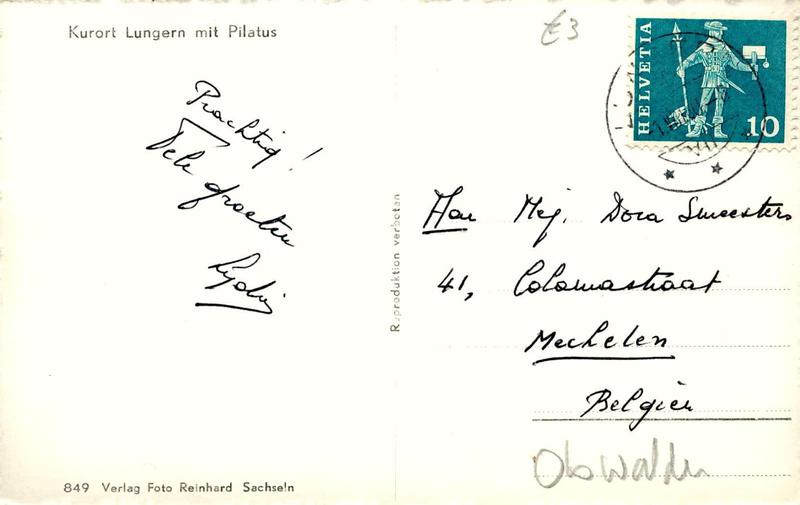 Kurort Lungern mit Pilatus
£3
HELVETIA
10
Prachtig!
Vele groeten
Lydia
Reproduktion verboten
Aan Mej. Dora Smeesters
41, Colomastraat
Mechelen
Belgien
Obwalden
849 Verlag Foto Reinhard Sachseln